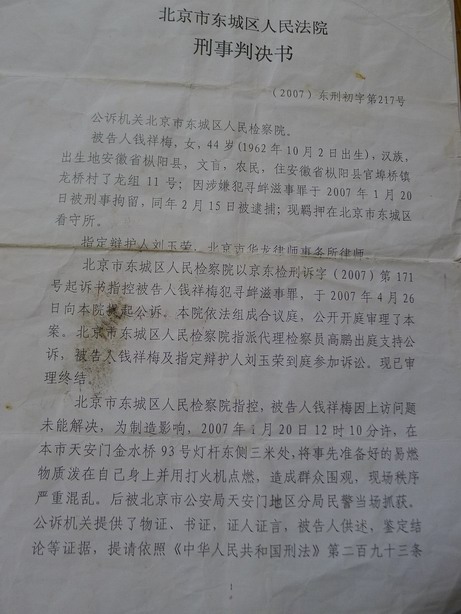 北京市东城区人民法院
刑事判决书
（2007）东刑初字第217号
公诉机关北京市东城区人民检察院。
被告人钱祥梅，女，44岁(1962年10月2日出生)，汉族，
出生地安徽省枞阳县，文盲，农民，住安徽省枞阳县官埠桥镇
龙桥村了龙组11号；因涉嫌犯寻衅滋事罪于2007年1月20
日被刑事拘留，同年2月15日被逮捕；现羁押在北京市东城区
看守所。
指定辩护人刘玉荣，北京市华龙律师事务所律师。
北京市东城区人民检察院以京东检刑诉字（2007）第171
号起诉书指控被告人钱祥梅犯寻衅滋事罪，于2007年4月26
日向本院提起公诉。本院依法组成合议庭，公开开庭审理了本
案。北京市东城区人民检察院指派代理检察员高鹏出庭支持公
诉，被告人钱祥梅及指定辩护人刘玉荣到庭参加诉讼。现已审
理终结。
北京市东城区人民检察院指控，被告人钱祥梅因上访问题
未能解决，为制造影响，2007年1月20日12时10分许，在
本市天安门金水桥93号灯杆东侧三米处，将事先准备好的易燃
物质泼在自己身上并用打火机点燃，造成群众围观，现场秩序
严重混乱。后被北京市公安局天安门地区分局民警当场抓获。
公诉机关提供了物证、书证，证人证言，被告人供述，鉴定结
论等证据，提请依照《中华人民共和国刑法》第二百九十三条
1